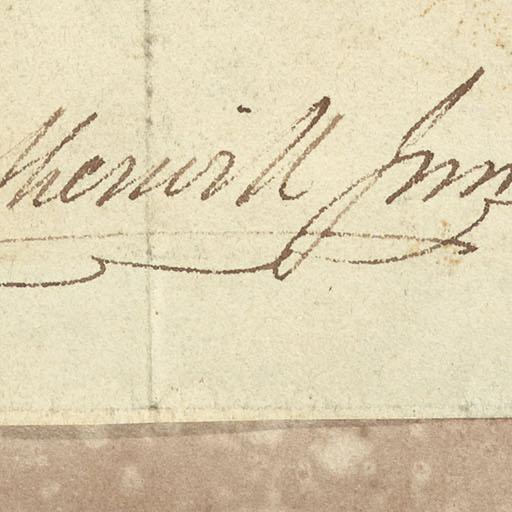 therwill Jun